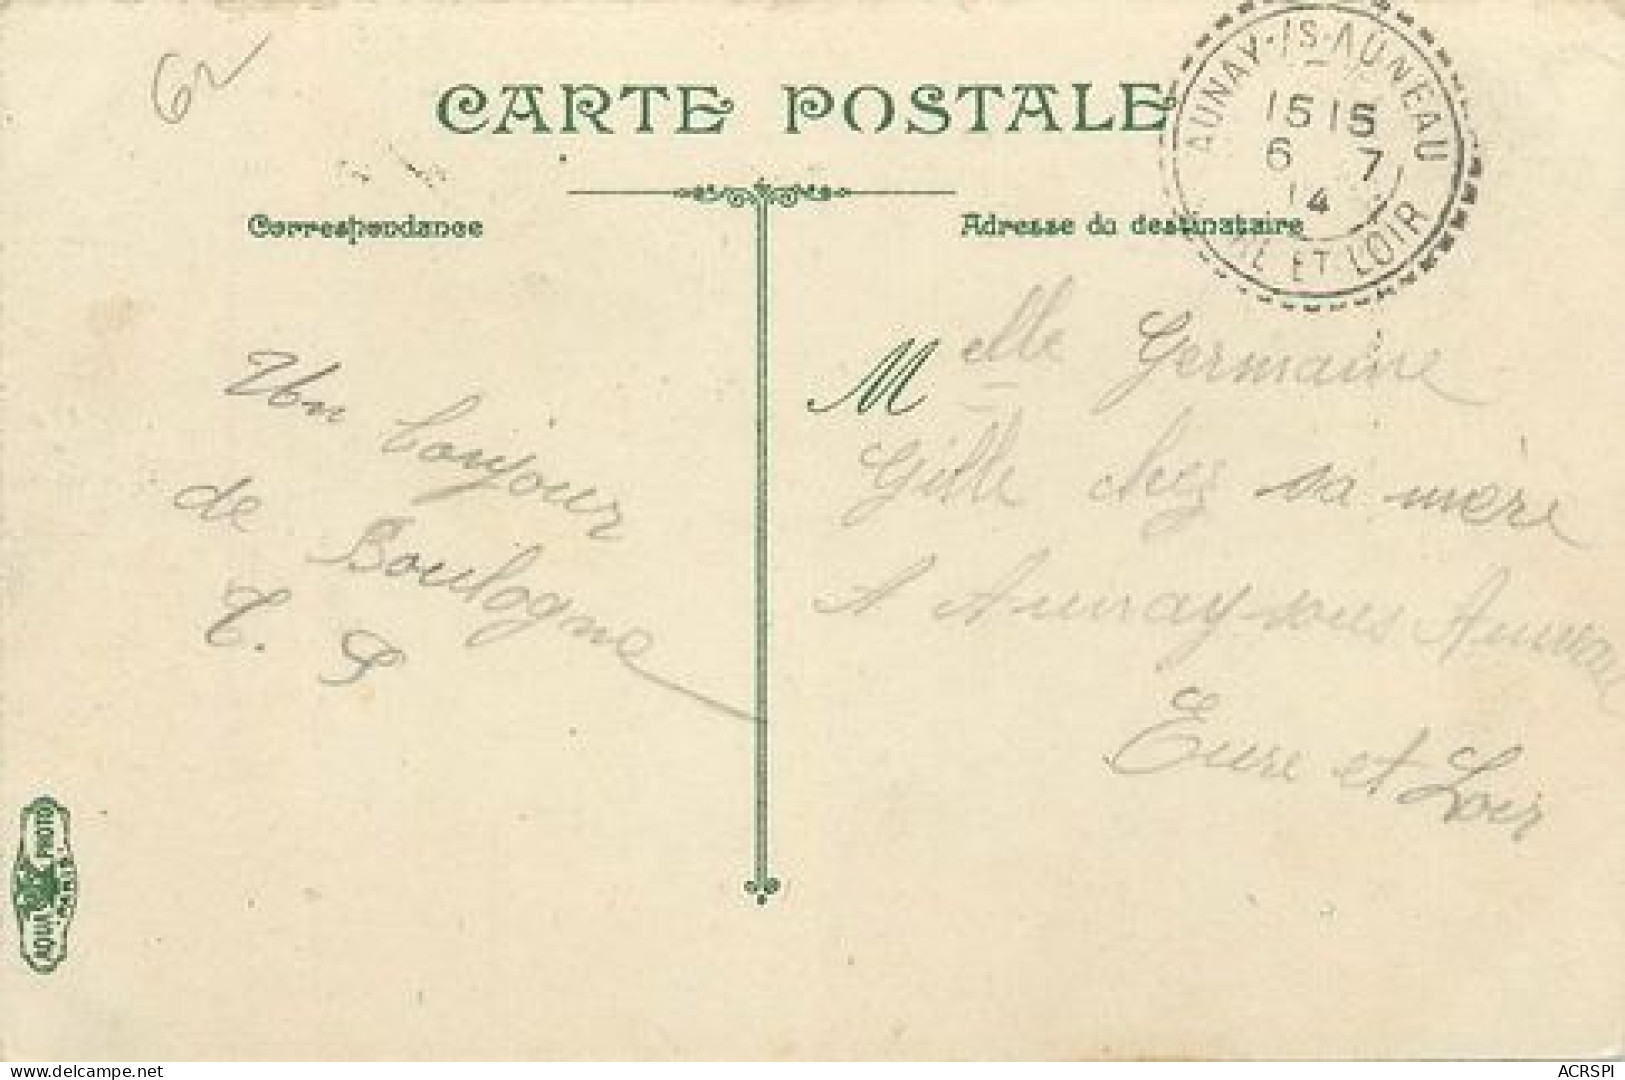 62
CARTE POSTALE
AUNAY-/S-AUNEAU
15 15
6 7
14
ET LOIR
Correspondance
Adresse du destinataire
Un bonjour
de Boulogne
M elle Germaine
Gille chez sa mère
A Aunay-sous Auneau
Eure et Loir
AQUA PHOTO
PARIS
www.delcampe.net
ACRSPI